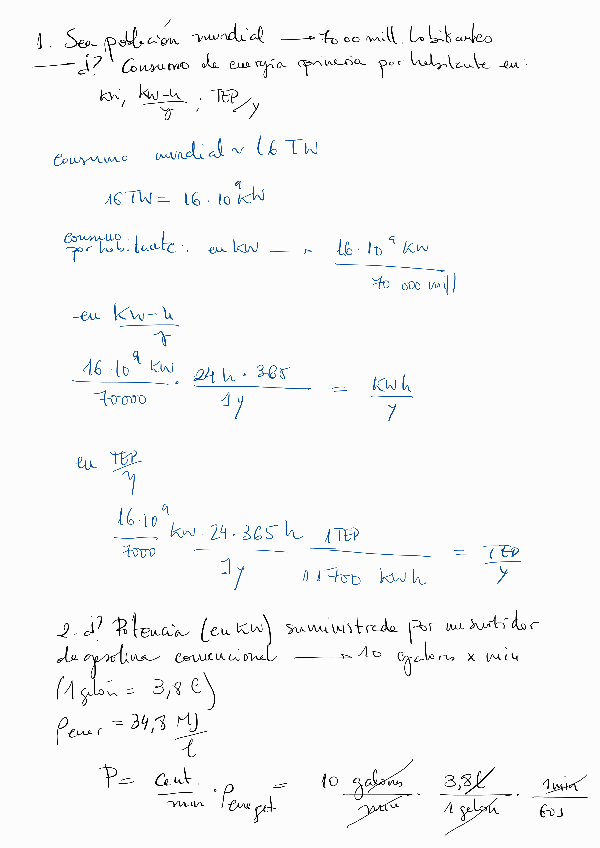 1. Sea población mundial → 7000 mill. habitantes
→ d? Consumo de energía primaria por habitante en:
kW, kW-h/y ; TEP/y
Consumo mundial ~ 16 TW
16 TW = 16 · 10⁹ kW
consumo por habitante: en kW → 16 · 10⁹ kW / 70 000 mill
- en kW-h/y
16 · 10⁹ kW / 70000 · 24 h · 365 / 1 y = kWh / y
en TEP/y
16 · 10⁹ / 7000 kW · 24 · 365 h / 1 y 1 TEP / 11700 kWh = TEP / y
2. d? Potencia (en kW) suministrada por un surtidor
de gasolina convencional → 10 galones x min
(1 galón = 3,8 l)
ρener = 34,8 MJ/l
P = cant. / min · ρ energet = 10 galones / min · 3,8 l / 1 galón · 1 min / 60 s